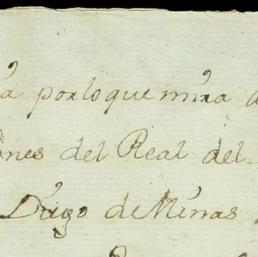 a por lo que mira a
ones del Real del
Diego de Minas